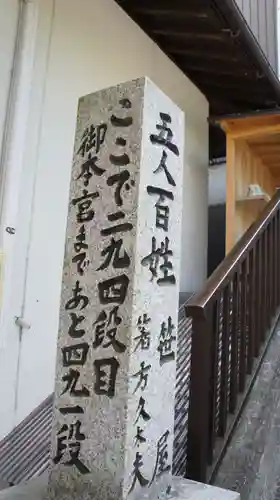 五人百姓 笹屋
箸方久太夫
ここで二九四段目
御本宮まであと四九一段